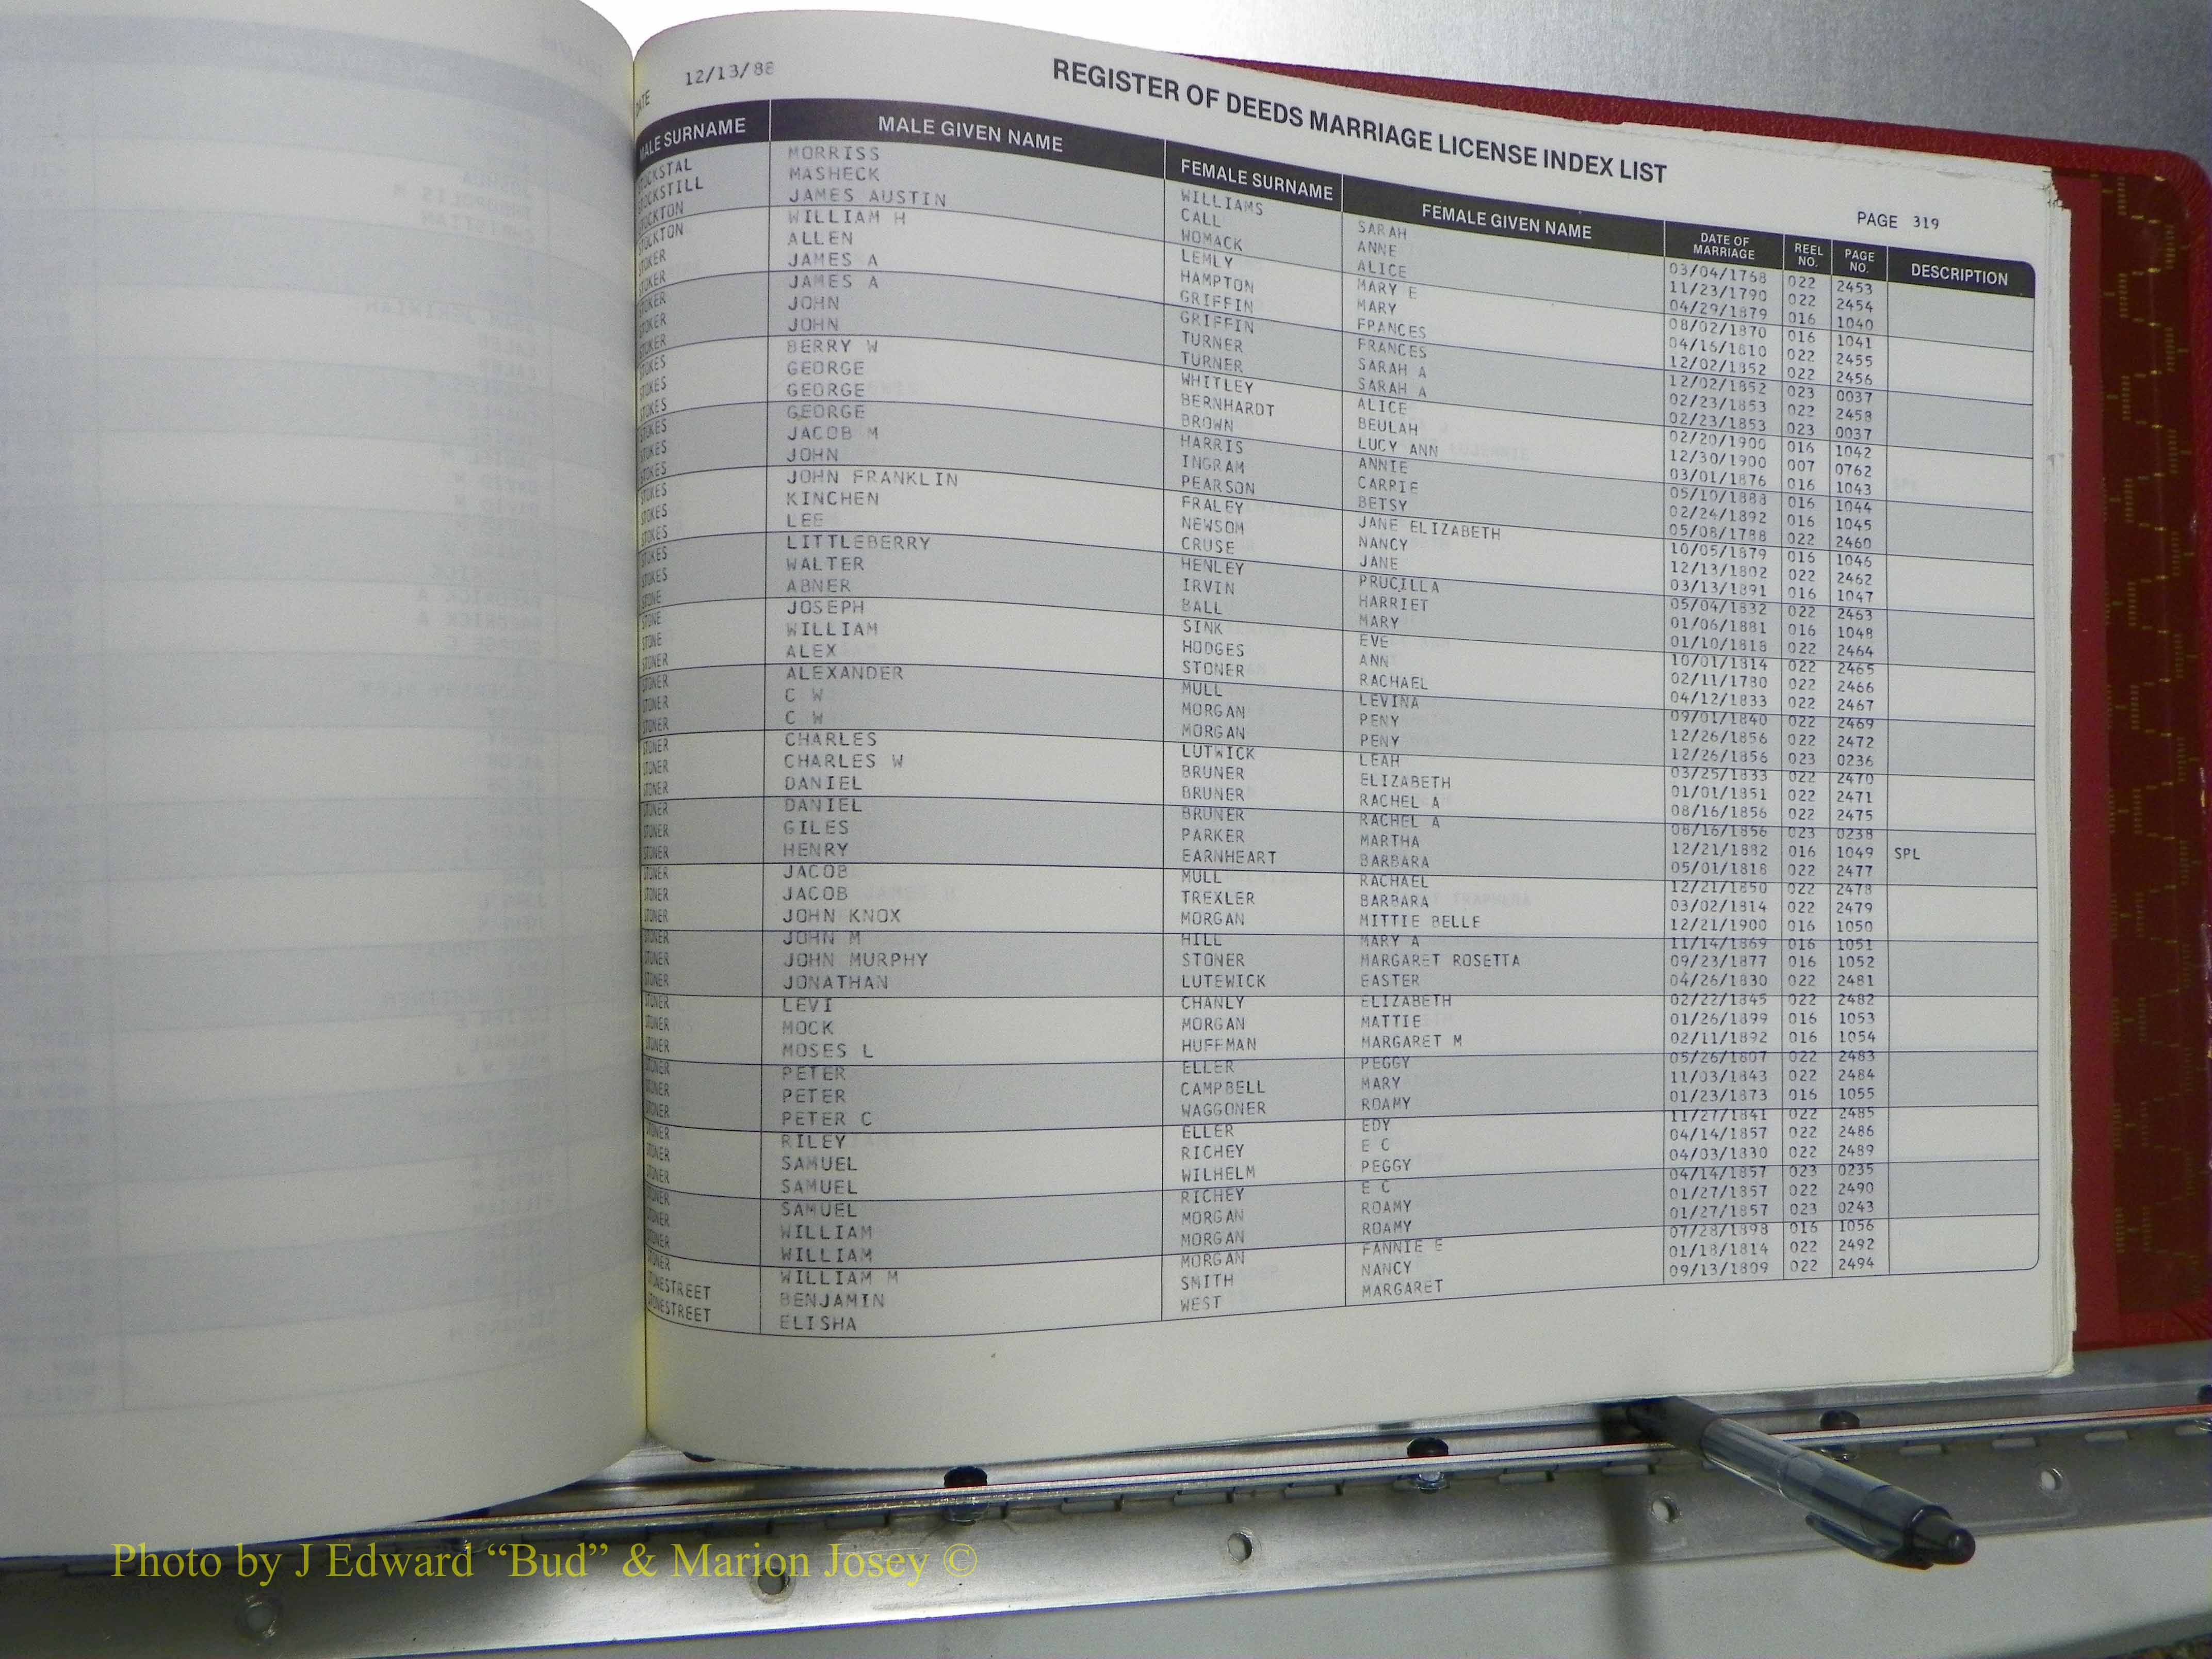 DATE 12/13/88
REGISTER OF DEEDS MARRIAGE LICENSE INDEX LIST
PAGE 319
MALE SURNAME MALE GIVEN NAME FEMALE SURNAME FEMALE GIVEN NAME DATE OF MARRIAGE REEL NO. PAGE NO. DESCRIPTION
STOCKSTAL MORRISS WILLIAMS SARAH 03/04/1768 022 2453
STOCKSTILL MASHECK CALL ANNE 11/23/1790 022 2454
STOCKTON JAMES AUSTIN WOMACK ALICE 04/29/1879 016 1040
STOCKTON WILLIAM H LEMLY MARY E 08/02/1870 016 1041
STOKER ALLEN HAMPTON MARY 04/16/1810 022 2455
STOKER JAMES A GRIFFIN FRANCES 12/02/1852 022 2456
STOKER JAMES A GRIFFIN FRANCES 12/02/1852 023 0037
STOKER JOHN TURNER SARAH A 02/23/1853 022 2458
STOKER JOHN TURNER SARAH A 02/23/1853 023 0037
STOKES BERRY W WHITLEY ALICE 02/20/1900 016 1042
STOKES GEORGE BERNHARDT BEULAH 12/30/1900 007 0762
STOKES GEORGE BROWN LUCY ANN 03/01/1876 016 1043
STOKES GEORGE HARRIS ANNIE 05/10/1888 016 1044
STOKES JACOB M INGRAM CARRIE 02/24/1892 016 1045
STOKES JOHN PEARSON BETSY 05/08/1788 022 2460
STOKES JOHN FRANKLIN FRALEY JANE ELIZABETH 10/05/1879 016 1046
STOKES KINCHEN NEWSOM NANCY 12/13/1802 022 2462
STOKES LEE CRUSE JANE 03/13/1891 016 1047
STOKES LITTLEBERRY HENLEY PRUCILLA 05/04/1832 022 2463
STOKES WALTER IRVIN HARRIET 01/06/1881 016 1048
STONE ABNER BALL MARY 01/10/1818 022 2464
STONE JOSEPH SINK EVE 10/01/1814 022 2465
STONE WILLIAM HODGES ANN 02/11/1780 022 2466
STONER ALEX STONER RACHAEL 04/12/1833 022 2467
STONER ALEXANDER MULL LEVINA 09/01/1840 022 2469
STONER C W MORGAN PENY 12/26/1856 022 2472
STONER C W MORGAN PENY 12/26/1856 023 0236
STONER CHARLES LUTWICK LEAH 03/25/1833 022 2470
STONER CHARLES W BRUNER ELIZABETH 01/01/1851 022 2471
STONER DANIEL BRUNER RACHEL A 08/16/1856 022 2475
STONER DANIEL BRUNER RACHEL A 08/16/1856 023 0238
STONER GILES PARKER MARTHA 12/21/1882 016 1049 SPL
STONER HENRY EARNHEART BARBARA 05/01/1818 022 2477
STONER JACOB MULL RACHAEL 12/21/1850 022 2478
STONER JACOB TREXLER BARBARA 03/02/1814 022 2479
STONER JOHN KNOX MORGAN MITTIE BELLE 12/21/1900 016 1050
STONER JOHN M HILL MARY A 11/14/1869 016 1051
STONER JOHN MURPHY STONER MARGARET ROSETTA 09/23/1877 016 1052
STONER JONATHAN LUTEWICK EASTER 04/26/1830 022 2481
STONER LEVI CHANLY ELIZABETH 02/22/1845 022 2482
STONER MOCK MORGAN MATTIE 01/26/1899 016 1053
STONER MOSES L HUFFMAN MARGARET M 02/11/1892 016 1054
STONER PETER ELLER PEGGY 05/26/1807 022 2483
STONER PETER CAMPBELL MARY 11/03/1843 022 2484
STONER PETER C WAGGONER ROAMY 01/23/1873 016 1055
STONER RILEY ELLER EDY 11/27/1841 022 2485
STONER SAMUEL RICHEY E C 04/14/1857 022 2486
STONER SAMUEL WILHELM PEGGY 04/03/1830 022 2489
STONER SAMUEL RICHEY E C 04/14/1857 023 0235
STONER WILLIAM MORGAN ROAMY 01/27/1857 022 2490
STONER WILLIAM MORGAN ROAMY 01/27/1857 023 0243
STONER WILLIAM M MORGAN FANNIE E 07/28/1898 016 1056
STONESTREET BENJAMIN SMITH NANCY 01/18/1814 022 2492
STONESTREET ELISHA WEST MARGARET 09/13/1809 022 2494
Photo by J Edward “Bud” & Marion Josey ©